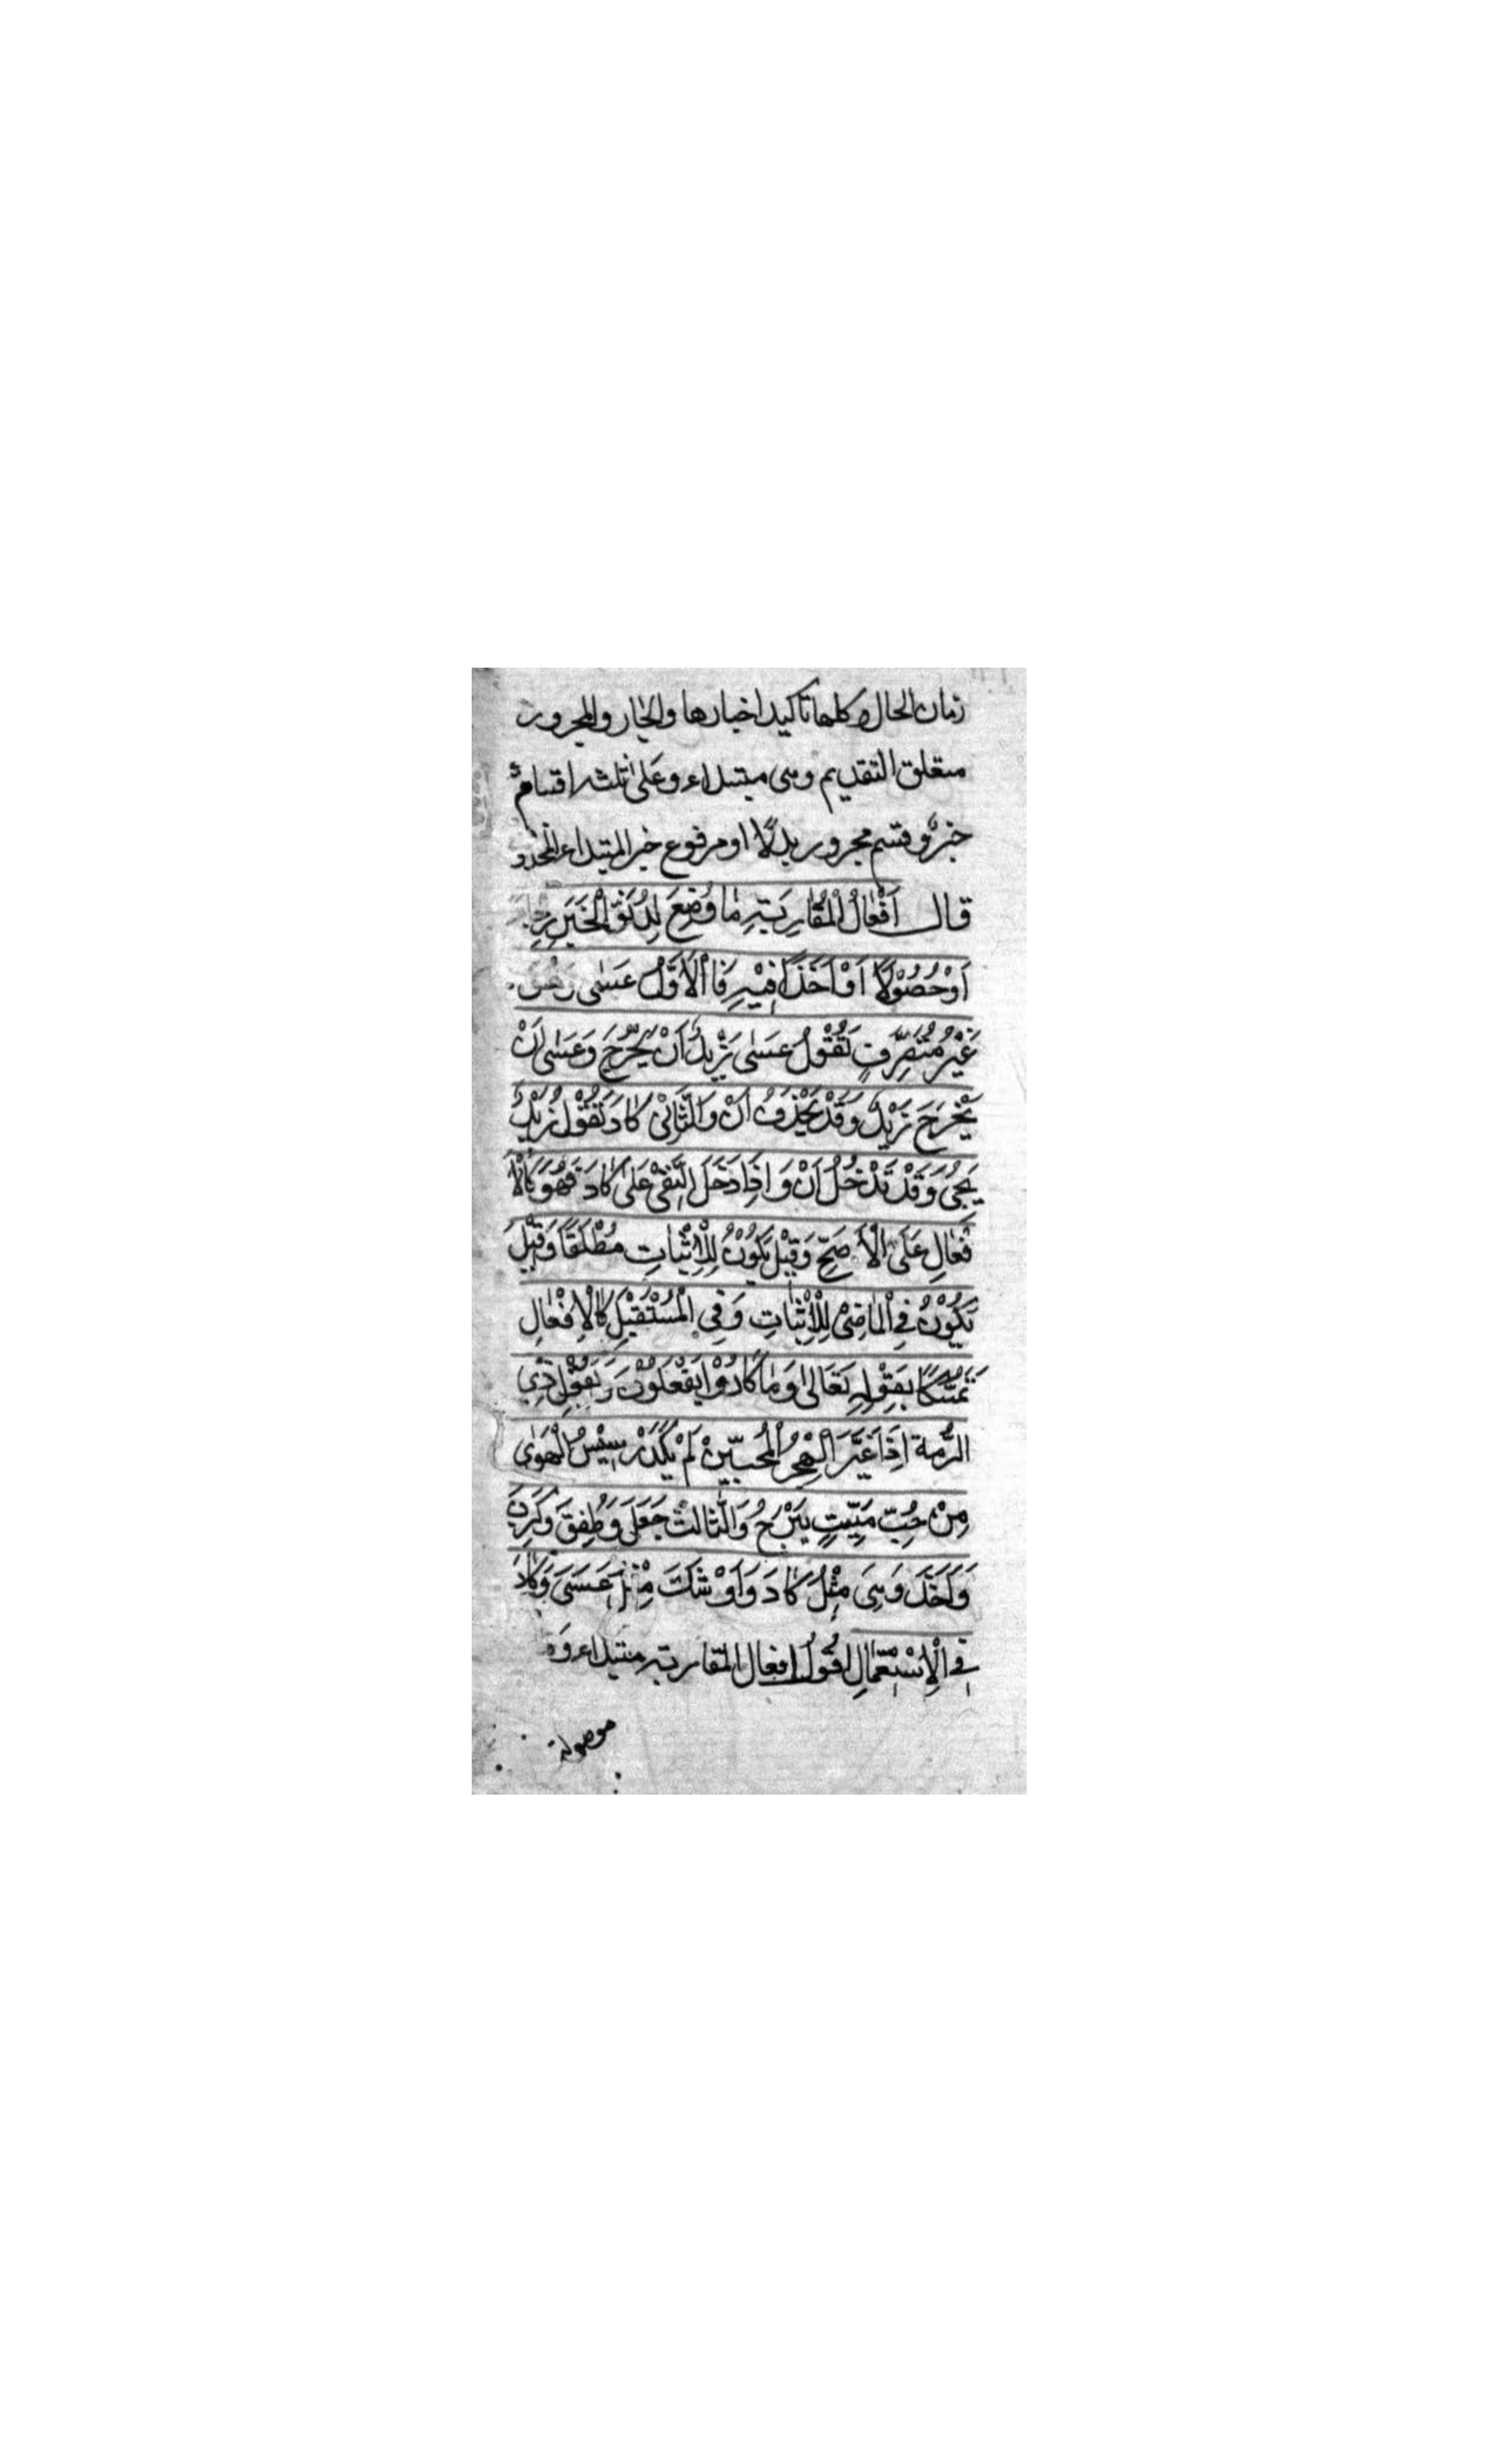 زمان الحال و كلها تاكيد اخبارها والجار والمجرور
متعلق التقديم وهى مبتداء وعلى ثلثه اقسام
خبره وقسم مجرور بدلا او مرفوع خبر المبتداء المحذو
قال اَفْعَالُ الْمُقَارَبَةِ مَا وُضِعَ لِدُنُوِّ الْخَبَرِ رجاء
اَوْ حُصُوْلًا اَوْ اَخْذًا فِيْهِ فَالْاَوَّلُ عَسٰى وَهُوَ
غَيْرُ مُتَصَرِّفٍ تَقُوْلُ عَسٰى زَيْدٌ اَنْ يَخْرُجَ وَعَسٰى اَنْ
يَخْرُجَ زَيْدٌ وَقَدْ يُحْذَفُ اَنْ وَالثَّانِىْ كَادَ تَقُوْلُ زَيْدٌ
يَجِىُٔ وَقَدْ تَدْخُلُ اَنْ وَاِذَا دَخَلَ النَّفْىُ عَلٰى كَادَ فَهُوَ كَالْاَ
فْعَالِ عَلَى الْاَصَحِّ وَقِيْلَ يَكُوْنُ لِلْاِثْبَاتِ مُطْلَقًا وَقِيْلَ
يَكُوْنُ فِى الْمَاضِىْ لِلْاِثْبَاتِ وَفِى الْمُسْتَقْبِلِ كَالْاَفْعَالِ
تَمَسُّكًا بِقَوْلِهِ تَعَالٰى وَمَا كَادُوْا يَفْعَلُوْنَ وَبِقَوْلِ ذِي
الرُّمة اِذَا غَيَّرَ الْهِجْرُ الْمُحِبِّيْنَ لَمْ يَكَدْ رَسِيْسُ الْهَوٰى
مِنْ حُبِّ مَيِّتٍ يَبْرَحُ وَالثَّالِثُ جَعَلَ وَطَفِقَ وَكَرَبَ
وَاَخَذَ وَهِىَ مِثْلُ كَادَ وَاَوْشَكَ مِثْلُ عَسَىَ وَكَادَ
فِى الْاِسْتِعْمَالِ اقول افعال المقاربة مبتداء وَمَا
موصولة